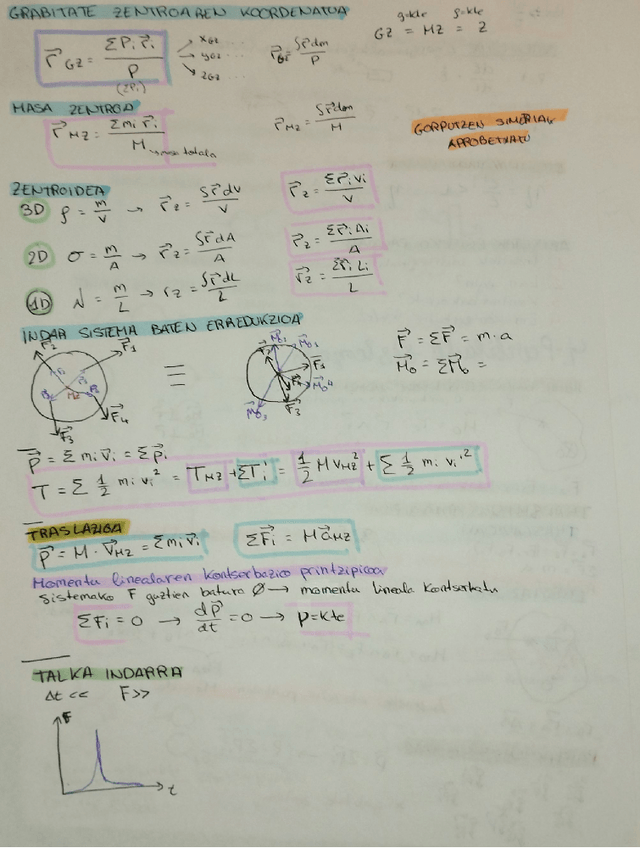 GRABITATE ZENTROAREN KOORDENATUA
g=kte ρ=kte
GZ = MZ = Z
r⃗GZ = ΣPi r⃗i / P (ΣPi) → xGZ ... yGZ ... zGZ ...
r⃗GZ = ∫r⃗dm / P
MASA ZENTROA
r⃗MZ = Σmi r⃗i / M → masa totala
r⃗MZ = ∫r⃗dm / M
GORPUTZEN SIMETRIAK
APROBETXATU
ZENTROIDEA
3D ρ = m/V → r⃗z = ∫r⃗dV / V r⃗z = Σr⃗i Vi / V
2D σ = m/A → r⃗z = ∫r⃗dA / A r⃗z = Σr⃗i Ai / A
1D λ = m/L → rz = ∫r⃗dL / L r⃗z = Σr⃗i Li / L
INDAR SISTEMA BATEN ERREDUKZIOA
F⃗2 F⃗1 MZ F⃗3 F⃗4
≡
F⃗1 F⃗3
F⃗ = ΣF⃗ = m·a
M⃗o = ΣM⃗o =
P⃗ = Σ mi v⃗i = Σ p⃗i
T = Σ 1/2 mi vi² = TMZ + ΣTi = 1/2 M vMZ² + Σ 1/2 mi vi'²
TRASLAZIOA
P⃗ = M · v⃗MZ = Σmi v⃗i ΣF⃗i = M a⃗MZ
Momentu linealaren kontserbazio printzipioa
Sistemako F guztien batura Ø → momentu lineala kontserbatu
ΣFi = 0 → dP⃗/dt = 0 → P = kte
TALKA INDARRA
Δt << F >>
F
t